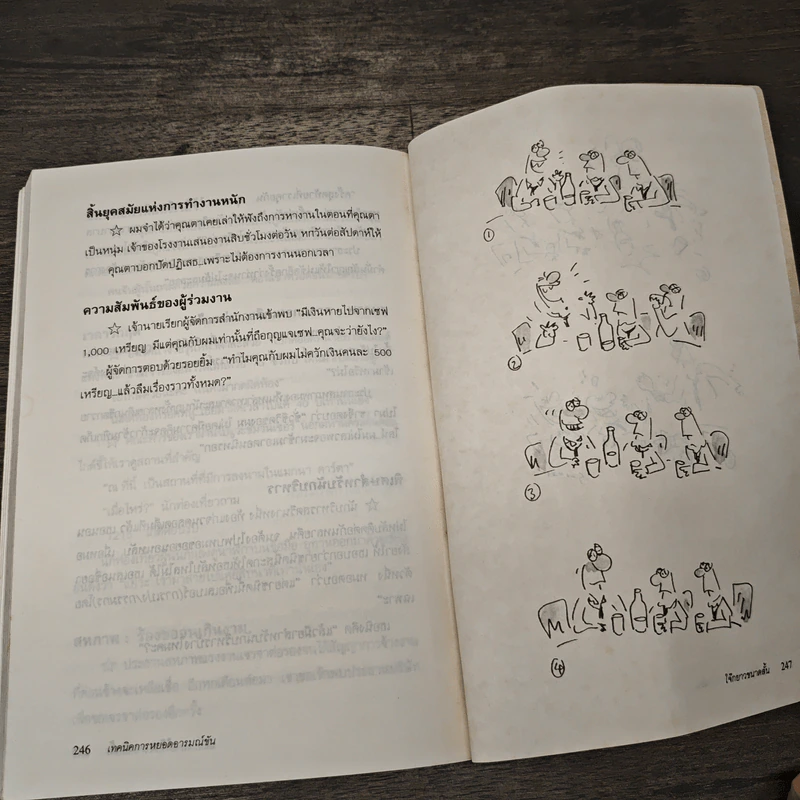 สิ้นยุคสมัยแห่งการทำงานหนัก
☆ ผมจำได้ว่าคุณตาเคยเล่าให้ฟังถึงการหางานในตอนที่คุณตา
เป็นหนุ่ม เจ้าของโรงงานเสนองานสิบชั่วโมงต่อวัน หกวันต่อสัปดาห์ให้
คุณตาบอกปัดปฏิเสธ..เพราะไม่ต้องการงานนอกเวลา
ความสัมพันธ์ของผู้ร่วมงาน
☆ เจ้านายเรียกผู้จัดการสำนักงานเข้าพบ “มีเงินหายไปจากเซฟ
1,000 เหรียญ มีแต่คุณกับผมเท่านั้นที่ถือกุญแจเซฟ..คุณจะว่ายังไง?”
ผู้จัดการตอบด้วยรอยยิ้ม “ทำไมคุณกับผมไม่ควักเงินคนละ 500
เหรียญ..แล้วลืมเรื่องราวทั้งหมด?”
246 เทคนิคการหยอดอารมณ์ขัน
1
2
3
4
โจ๊กยาวขนาดสั้น 247